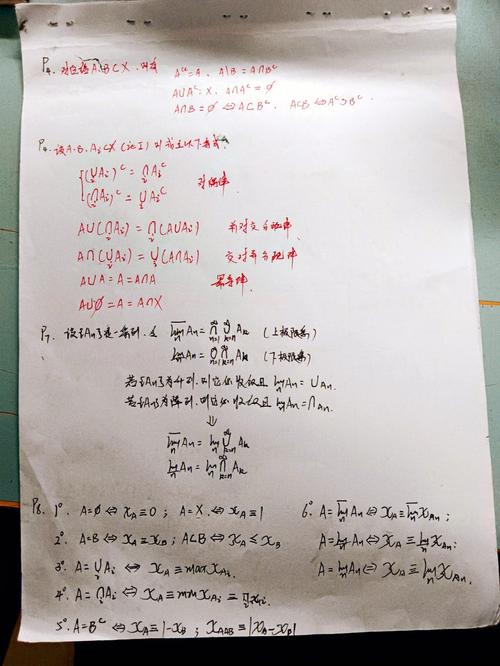 P4. 对任意A,B⊂X,则有 A^cc=A, A\B=A∩B^c
A∪A^c=X, A∩A^c=∅
A∩B=∅⇔A⊂B^c, A⊂B⇔A^c⊃B^c
P4. 设A,B,Ai⊂X(i∈I)则成立以下等式:
(∪_i Ai)^c=∩_i Ai^c
(∩_i Ai)^c=∪_i Ai^c 对偶律
A∪(∩_i Ai)=∩_i(A∪Ai) 并对交分配律
A∩(∪_i Ai)=∪_i(A∩Ai) 交对并分配律
A∪A=A=A∩A 幂等律
A∪∅=A=A∩X
P7. 设{An}是一集列,令 \overline{lim}_n An=∩_{n=1}^∞ ∪_{k=n}^∞ Ak (上极限集)
\underline{lim}_n An=∪_{n=1}^∞ ∩_{k=n}^∞ Ak (下极限集)
若{An}为升列,则它必收敛且 lim_n An=∪An.
若{An}为降列,则它必收敛且 lim_n An=∩An.
⇓
\overline{lim}_n An=lim_n ∪_{k=n}^∞ Ak
\underline{lim}_n An=lim_n ∩_{k=n}^∞ Ak
P8. 1° A=∅⇔χ_A≡0; A=X⇔χ_A≡1
2° A=B⇔χ_A≡χ_B; A⊂B⇔χ_A≤χ_B
3° A=∪_i Ai⇔χ_A≡max χ_Ai.
4° A=∩_i Ai⇔χ_A≡min χ_Ai≡
5° A=B^c⇔χ_A≡1-χ_B; χ_AΔB≡|χ_A-χ_B|
6° A=\overline{lim}_n An⇔χ_A≡\overline{lim}_n χ_An;
A=\underline{lim}_n An⇔χ_A≡\underline{lim}_n χ_An;
A=lim_n An⇔χ_A≡lim_n χ_An.